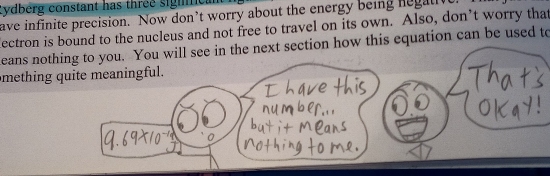 Rydberg constant has three
have infinite precision. Now don't worry about the energy being negative.
electron is bound to the nucleus and not free to travel on its own. Also, don't worry that
means nothing to you. You will see in the next section how this equation can be used to
something quite meaningful.
I have this
number...
but it means
nothing to me.
That's
okay!
9.69x10⁻¹⁹
J